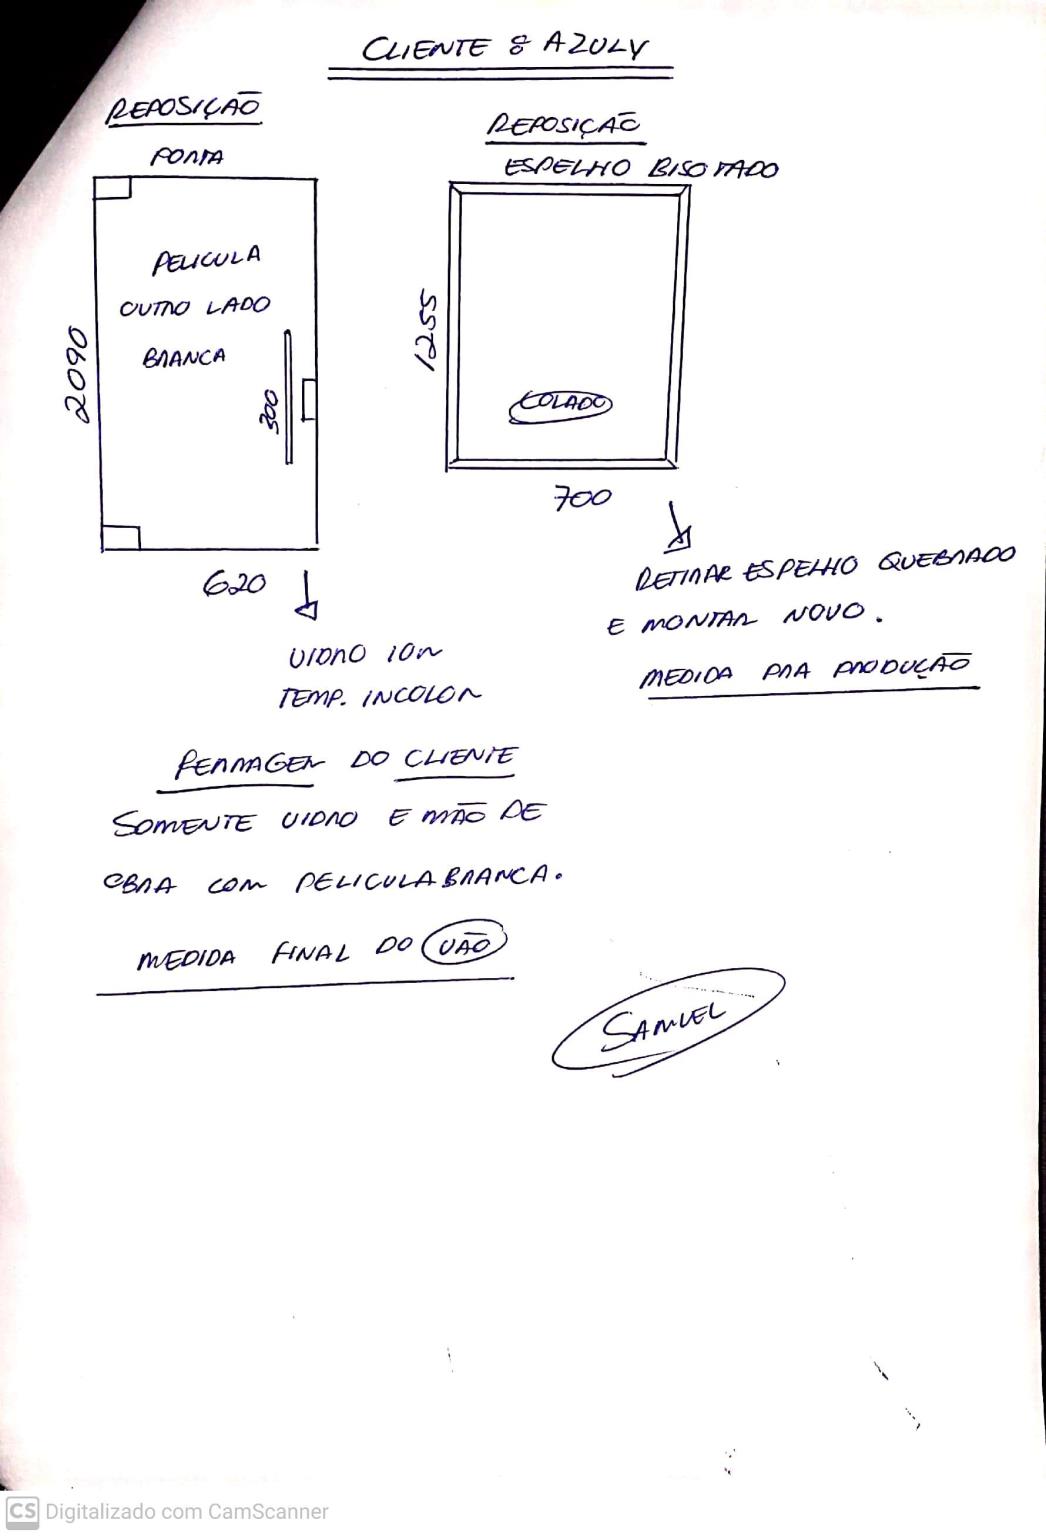 CLIENTE : AZULY
REPOSIÇÃO
PORTA
PELICULA
OUTRO LADO
BRANCA
2090
300
620
VIDRO 10m
TEMP. INCOLOR
FERRAGEM DO CLIENTE
SOMENTE VIDRO E MÃO DE
OBRA COM PELICULA BRANCA.
MEDIDA FINAL DO VÃO
REPOSIÇÃO
ESPELHO BISOTADO
1255
COLADO
700
RETIRAR ESPELHO QUEBRADO
E MONTAR NOVO.
MEDIDA PRA PRODUÇÃO
SAMUEL
CS Digitalizado com CamScanner